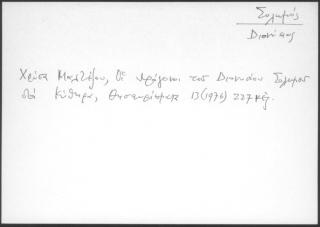 Σολωμός
Διονύσιος
Χρύσα Μαλτέζου, Οἱ πρόγονοι τοῦ Διονυσίου Σολωμοῦ
στά Κύθηρα, Θησαυρίσματα 13 (1976) 227 κἑξ.